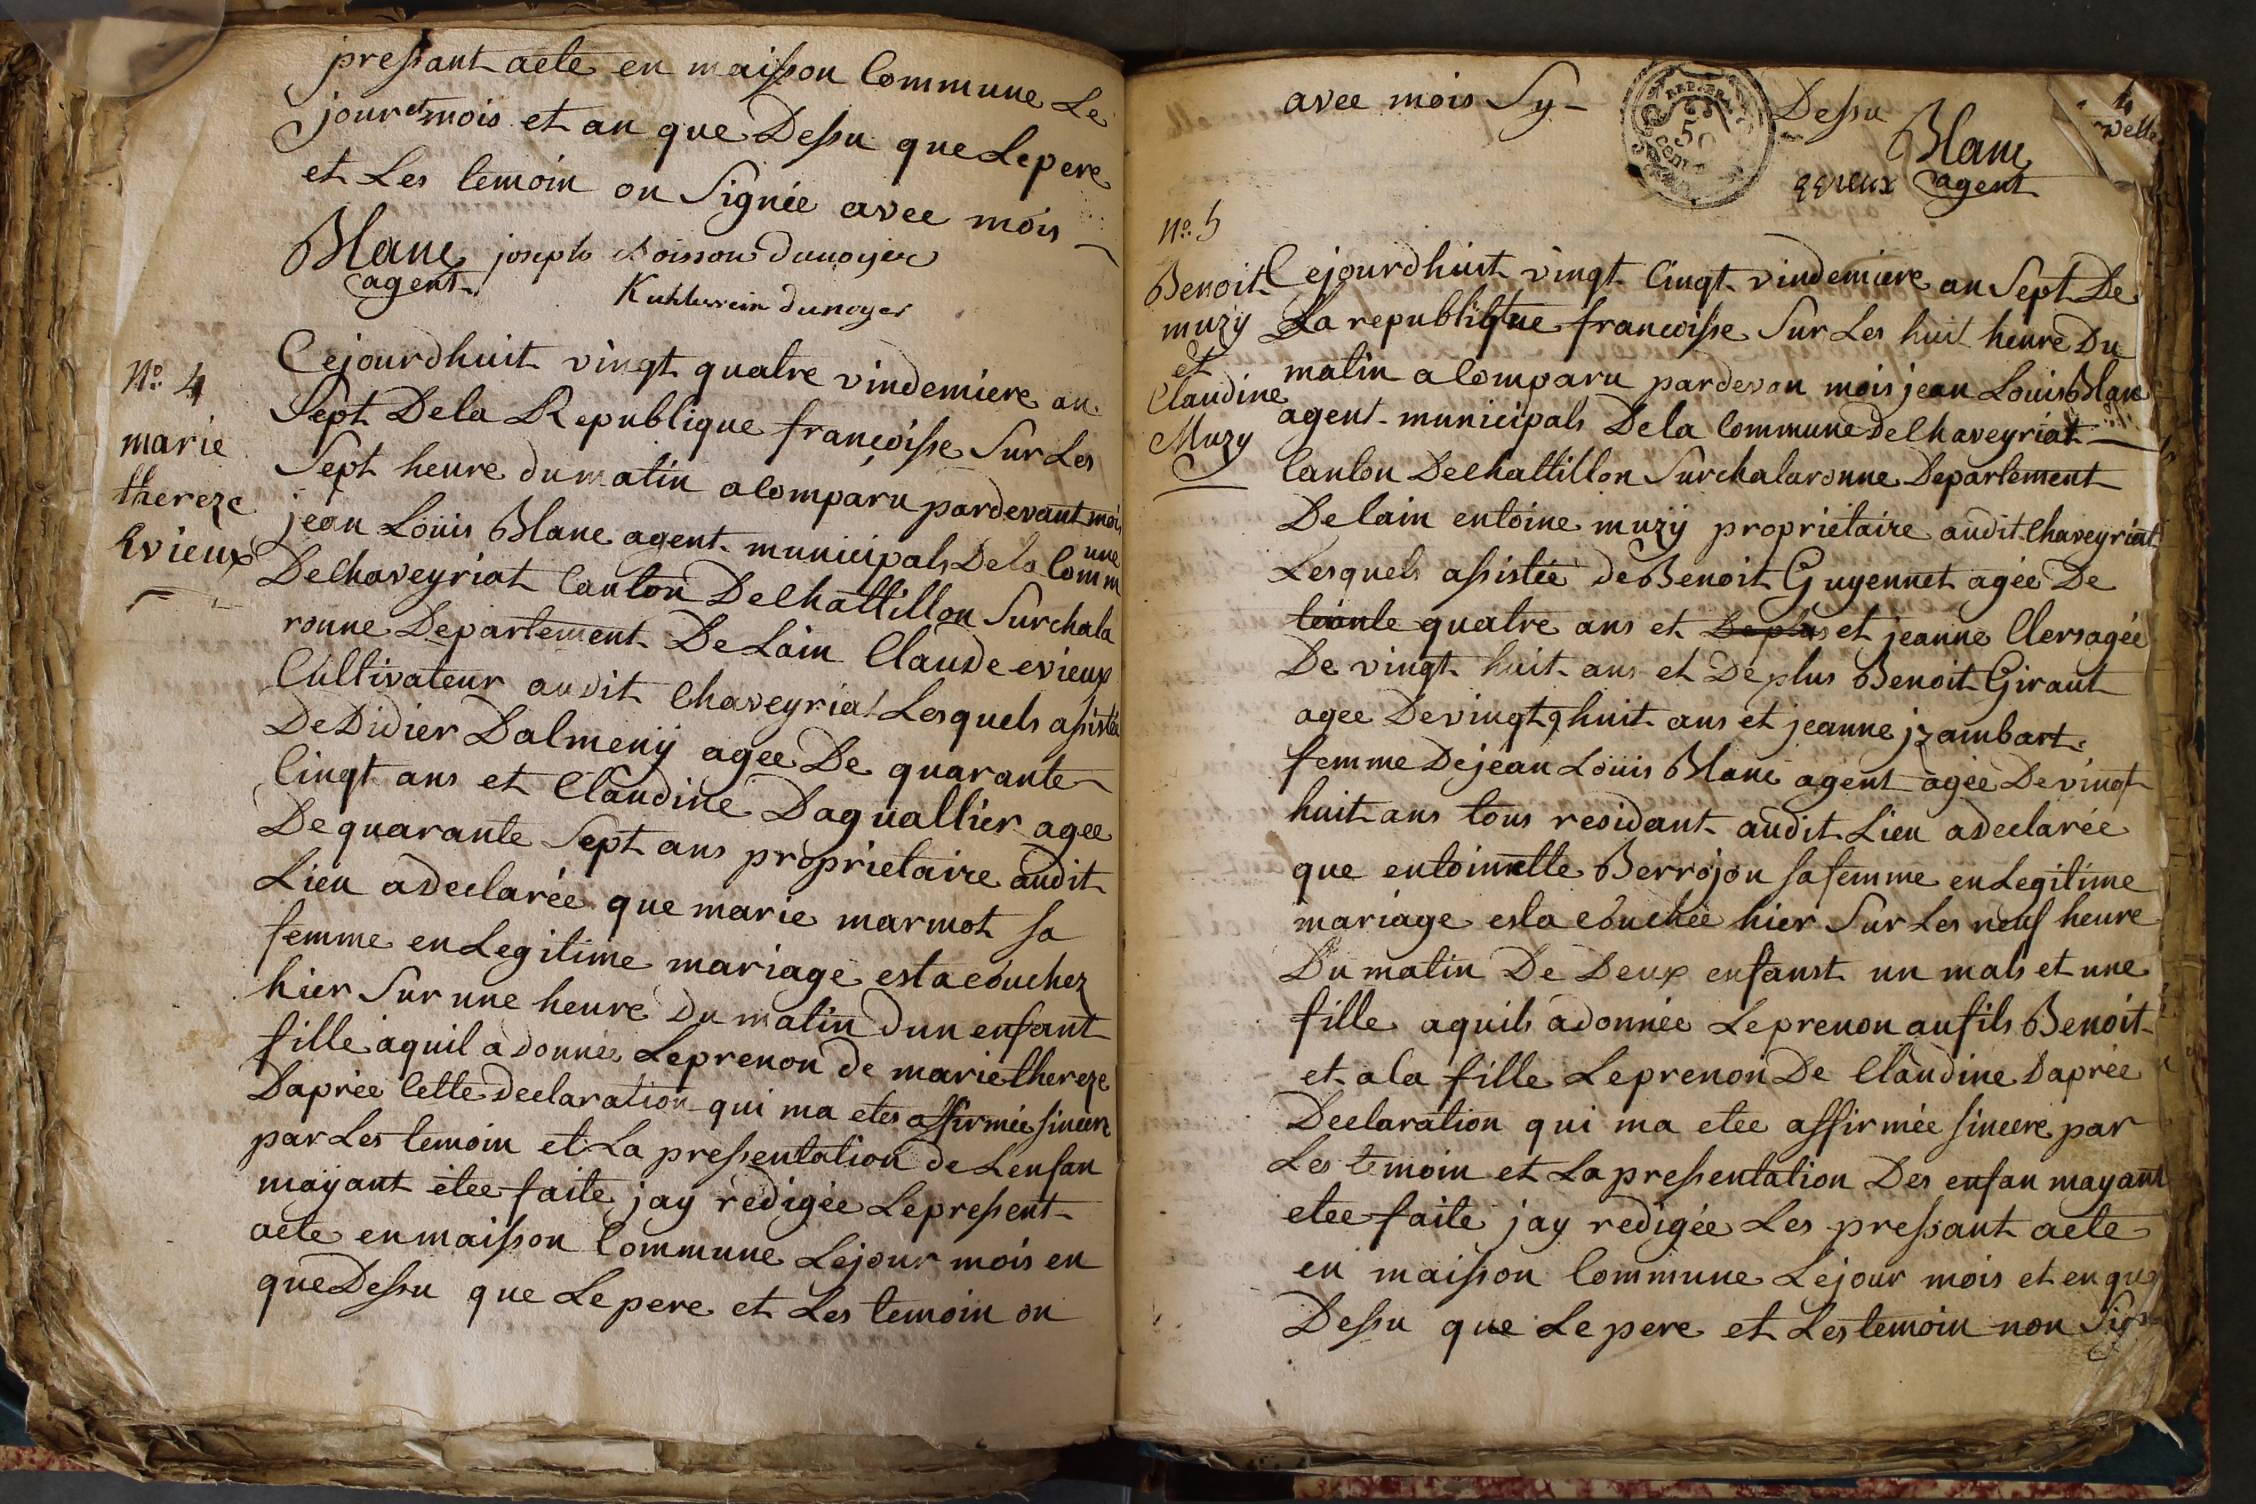 pressant acte en maisson Commune Le
jour et mois et an que Dessu que Le pere
et Les temoin on Signée avec mois
Blanc joseph Boisson dunoyer
agent
Kuhlwein dunoyer
No. 4
marie
thereze
Evieux
Cejourdhuit vingt quatre vindemiere an
Sept De la Republique francoisse Sur Les
Sept heure du matin a Comparu pardevant mois
jean Louis Blanc agent municipals De la Commune
De Chaveyriat Canton De Chattillon Sur chala
ronne Departement De Lain Claude evieux
Cultivateur audit Chaveyriat Lesquels assistée
De Didier Dalmenÿ agee De quarante
Cinqt ans et Claudine Daguallier agee
De quarante Sept ans proprietaire audit
Lieu a declarée que marie marmot sa
femme en Legitime mariage est acouchez
hier Sur une heure du matin dun enfant
fille aquil a donnés Le prenon de marie thereze
Daprée Cette declaration qui ma etes affirmée sincere
par Les temoin et La pressentation de Lenfan
maÿant étee faite jay redigée Le pressent
acte en maisson Commune Le jour mois en
que Dessu que Le pere et Les temoin on
avec mois Sy- Dessu
REP. FRA
50
CENT
Blanc
evieux agent
No. 5
Benoit
muzy
et
Claudine
Muzy
Cejourdhuit vingt Cinqt vindemiere an Sept De
La republique francoisse Sur Les huit heure Du
matin a Comparu pardevan mois jean Louis Blanc
agent municipals De la Commune de Chaveyriat
Canton De Chattillon Sur chalaronne Departement
De lain entoine muzÿ proprietaire audit Chaveyriat
Lesquels assistée de Benoit Guyennet agée De
trante quatre ans et De plus et jeanne Clers agée
De vingt huit ans et De plus Benoit Giraut
agee De vingt huit ans et jeanne jzambart
femme De jean Louis Blanc agent agée De vingt
huit ans tous residant audit Lieu a declarée
que entoinette Berrojon sa femme en Legitime
mariage est a couchée hier Sur Les neuf heure
Du matin De Deux enfanst un mals et une
fille aquils a donnée Le prenon au fils Benoit
et a la fille Le prenon De Claudine Daprée
Declaration qui ma etee affirmée sincere par
Les temoin et La pressentation Des enfan mayant
etee faite jay redigée Les pressant acte
en maisson Commune Le jour mois et en que
Dessu que Le pere et Les temoin non Sig